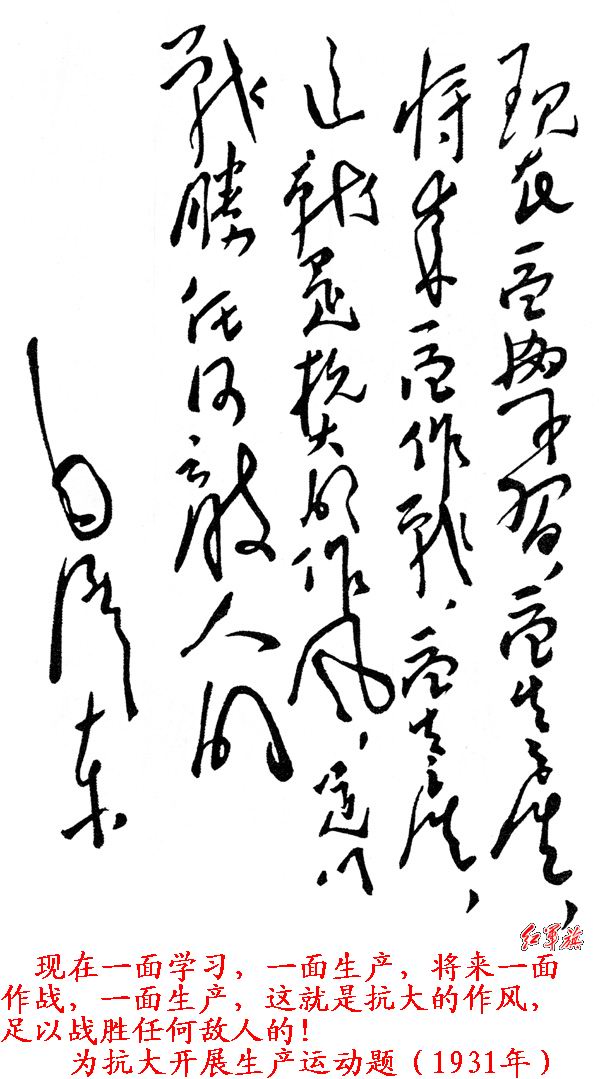 现在一面學习，一面生产，
将来一面作戰，一面生产，
这就是抗大的作风，足以
戰勝任何敌人的
毛泽东
红军旗
现在一面学习，一面生产，将来一面
作战，一面生产，这就是抗大的作风，
足以战胜任何敌人的！
为抗大开展生产运动题（1931年）